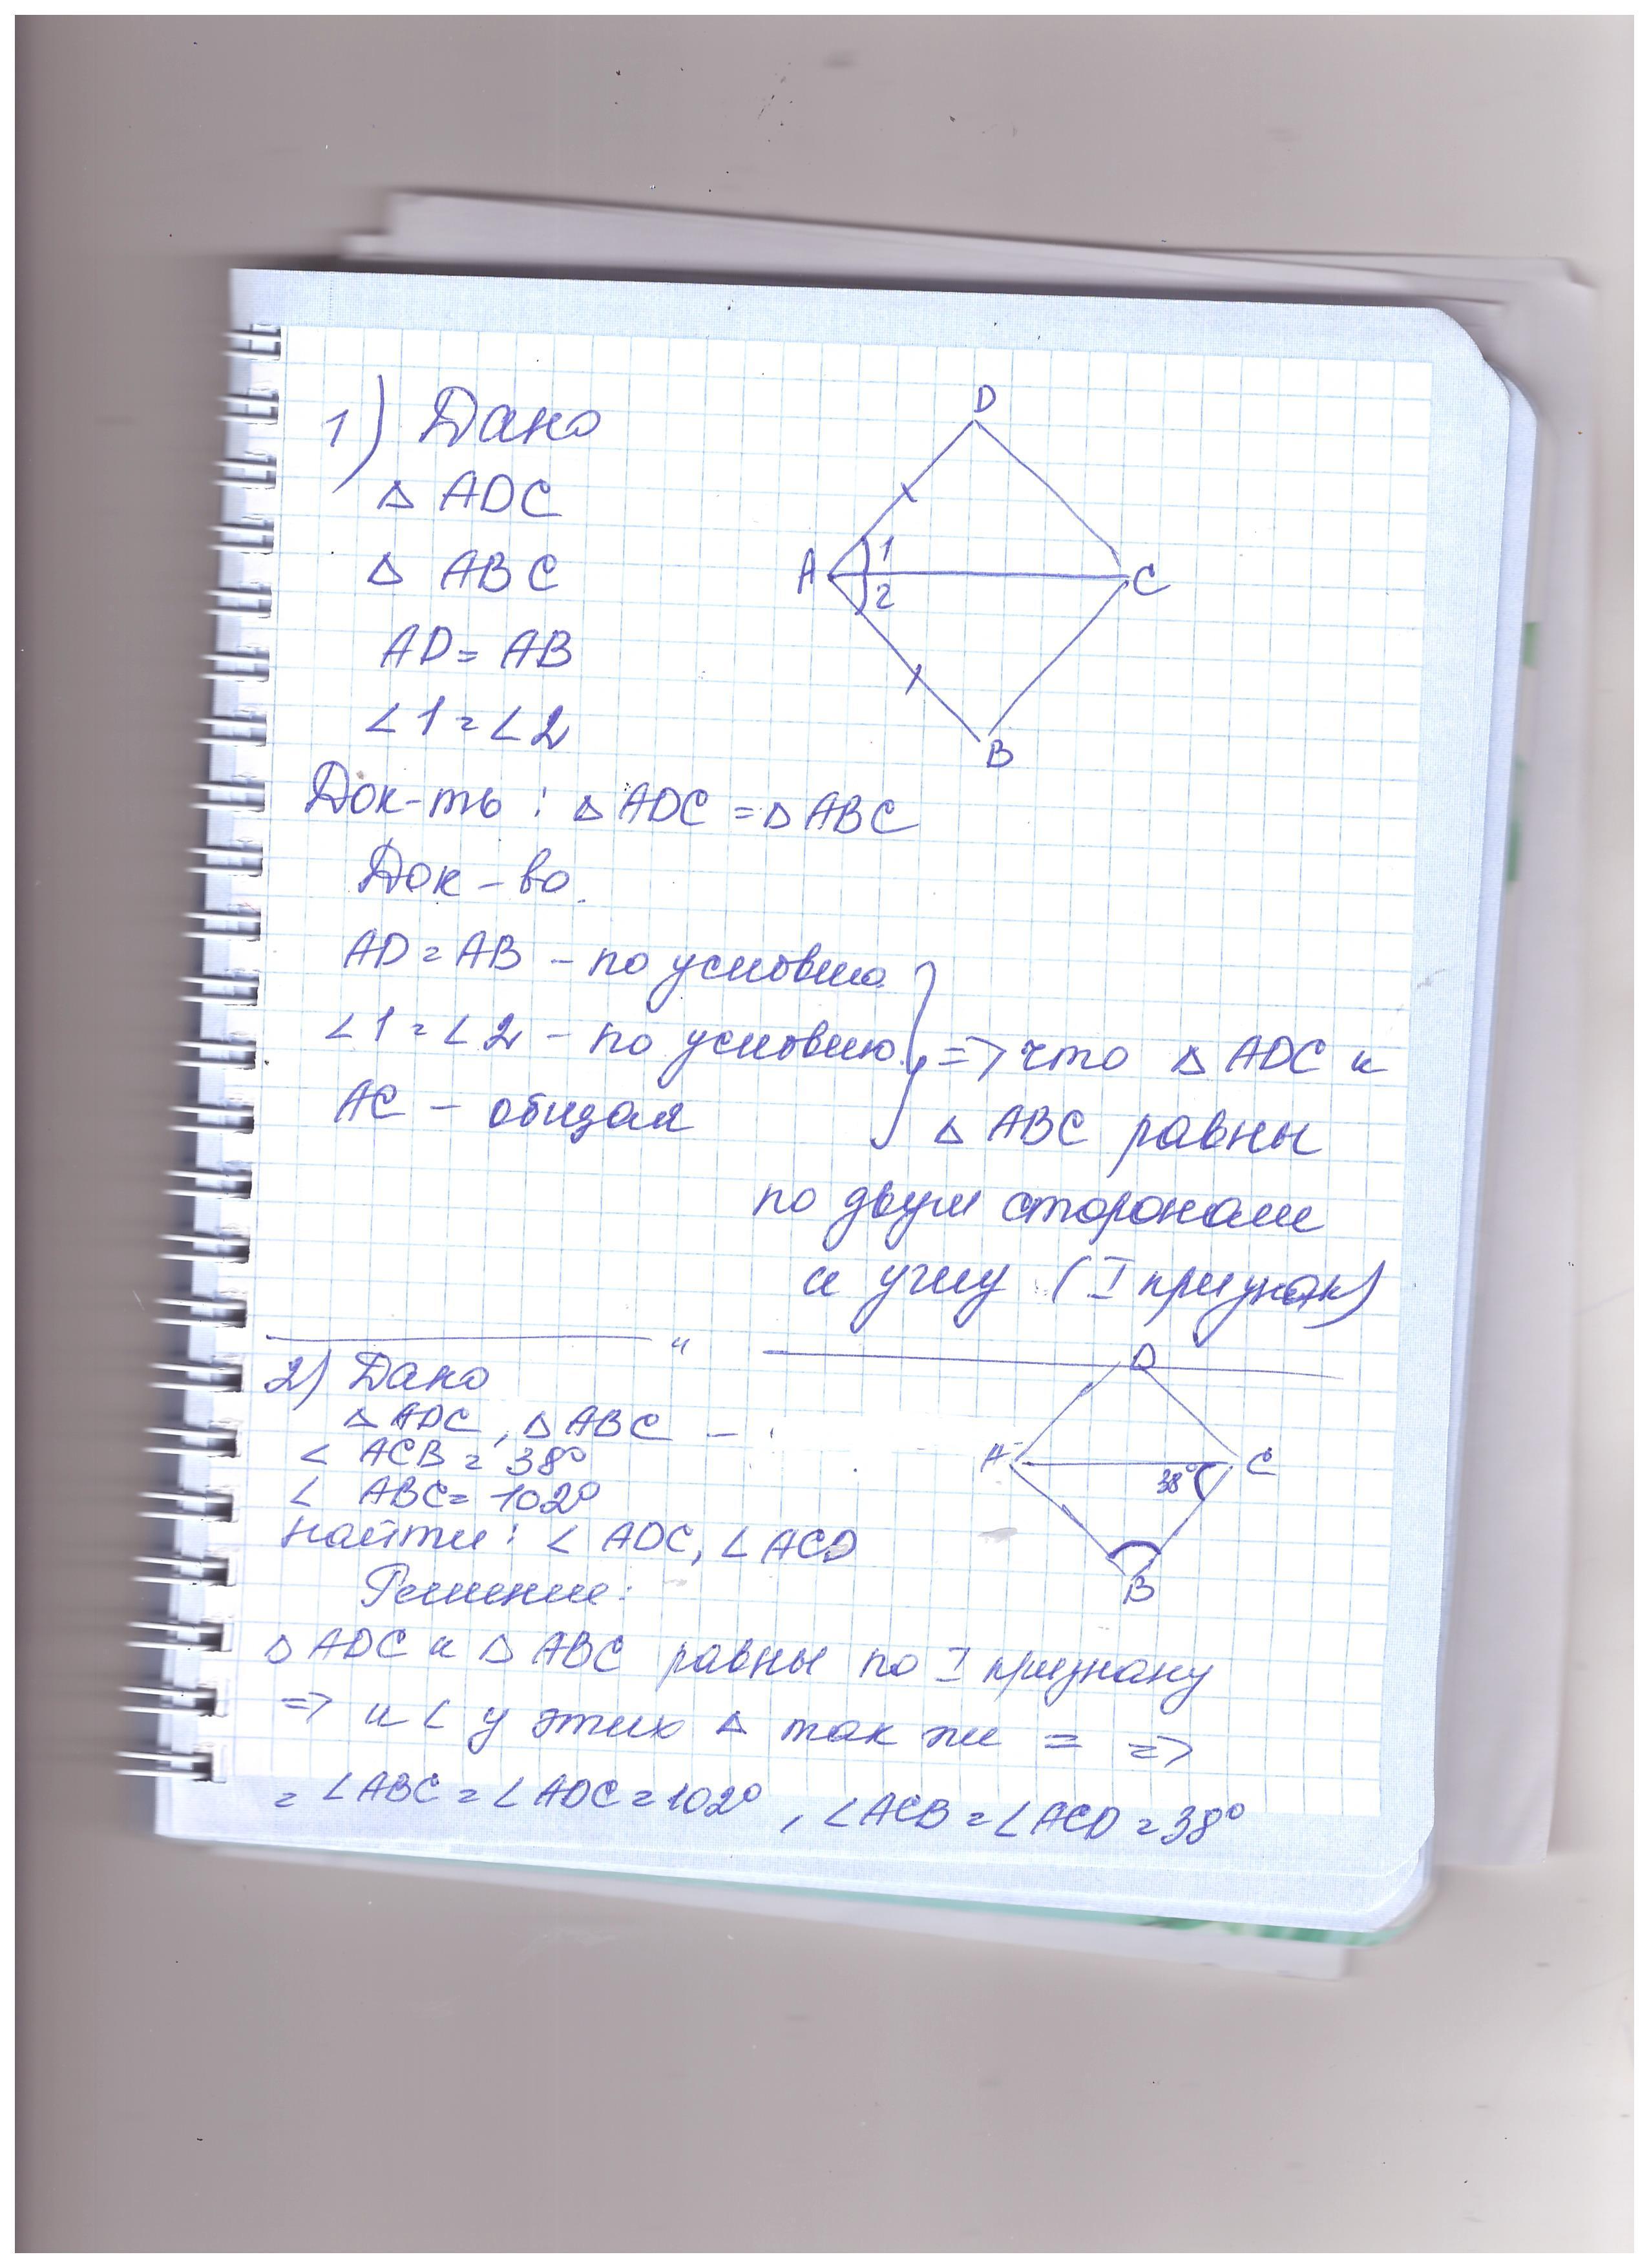 1) Дано
△ ADC
△ ABC
AD = AB
∠1 = ∠2
D
A
1
2
C
B
Док-ть : △ ADC = △ ABC
Док-во.
AD = AB – по условию
∠1 = ∠2 – по условию => что △ ADC и
AC – общая △ ABC равны
по двум сторонам
и углу (I признак)
"
2) Дано
△ ADC, △ ABC –
∠ ACB = 38°
∠ ABC = 102°
найти: ∠ ADC, ∠ ACD
D
A
38°
C
B
Решение:
△ ADC и △ ABC равны по I признаку
=> и ∠ у этих △ так же = =>
= ∠ABC = ∠ADC = 102°, ∠ACB = ∠ACD = 38°